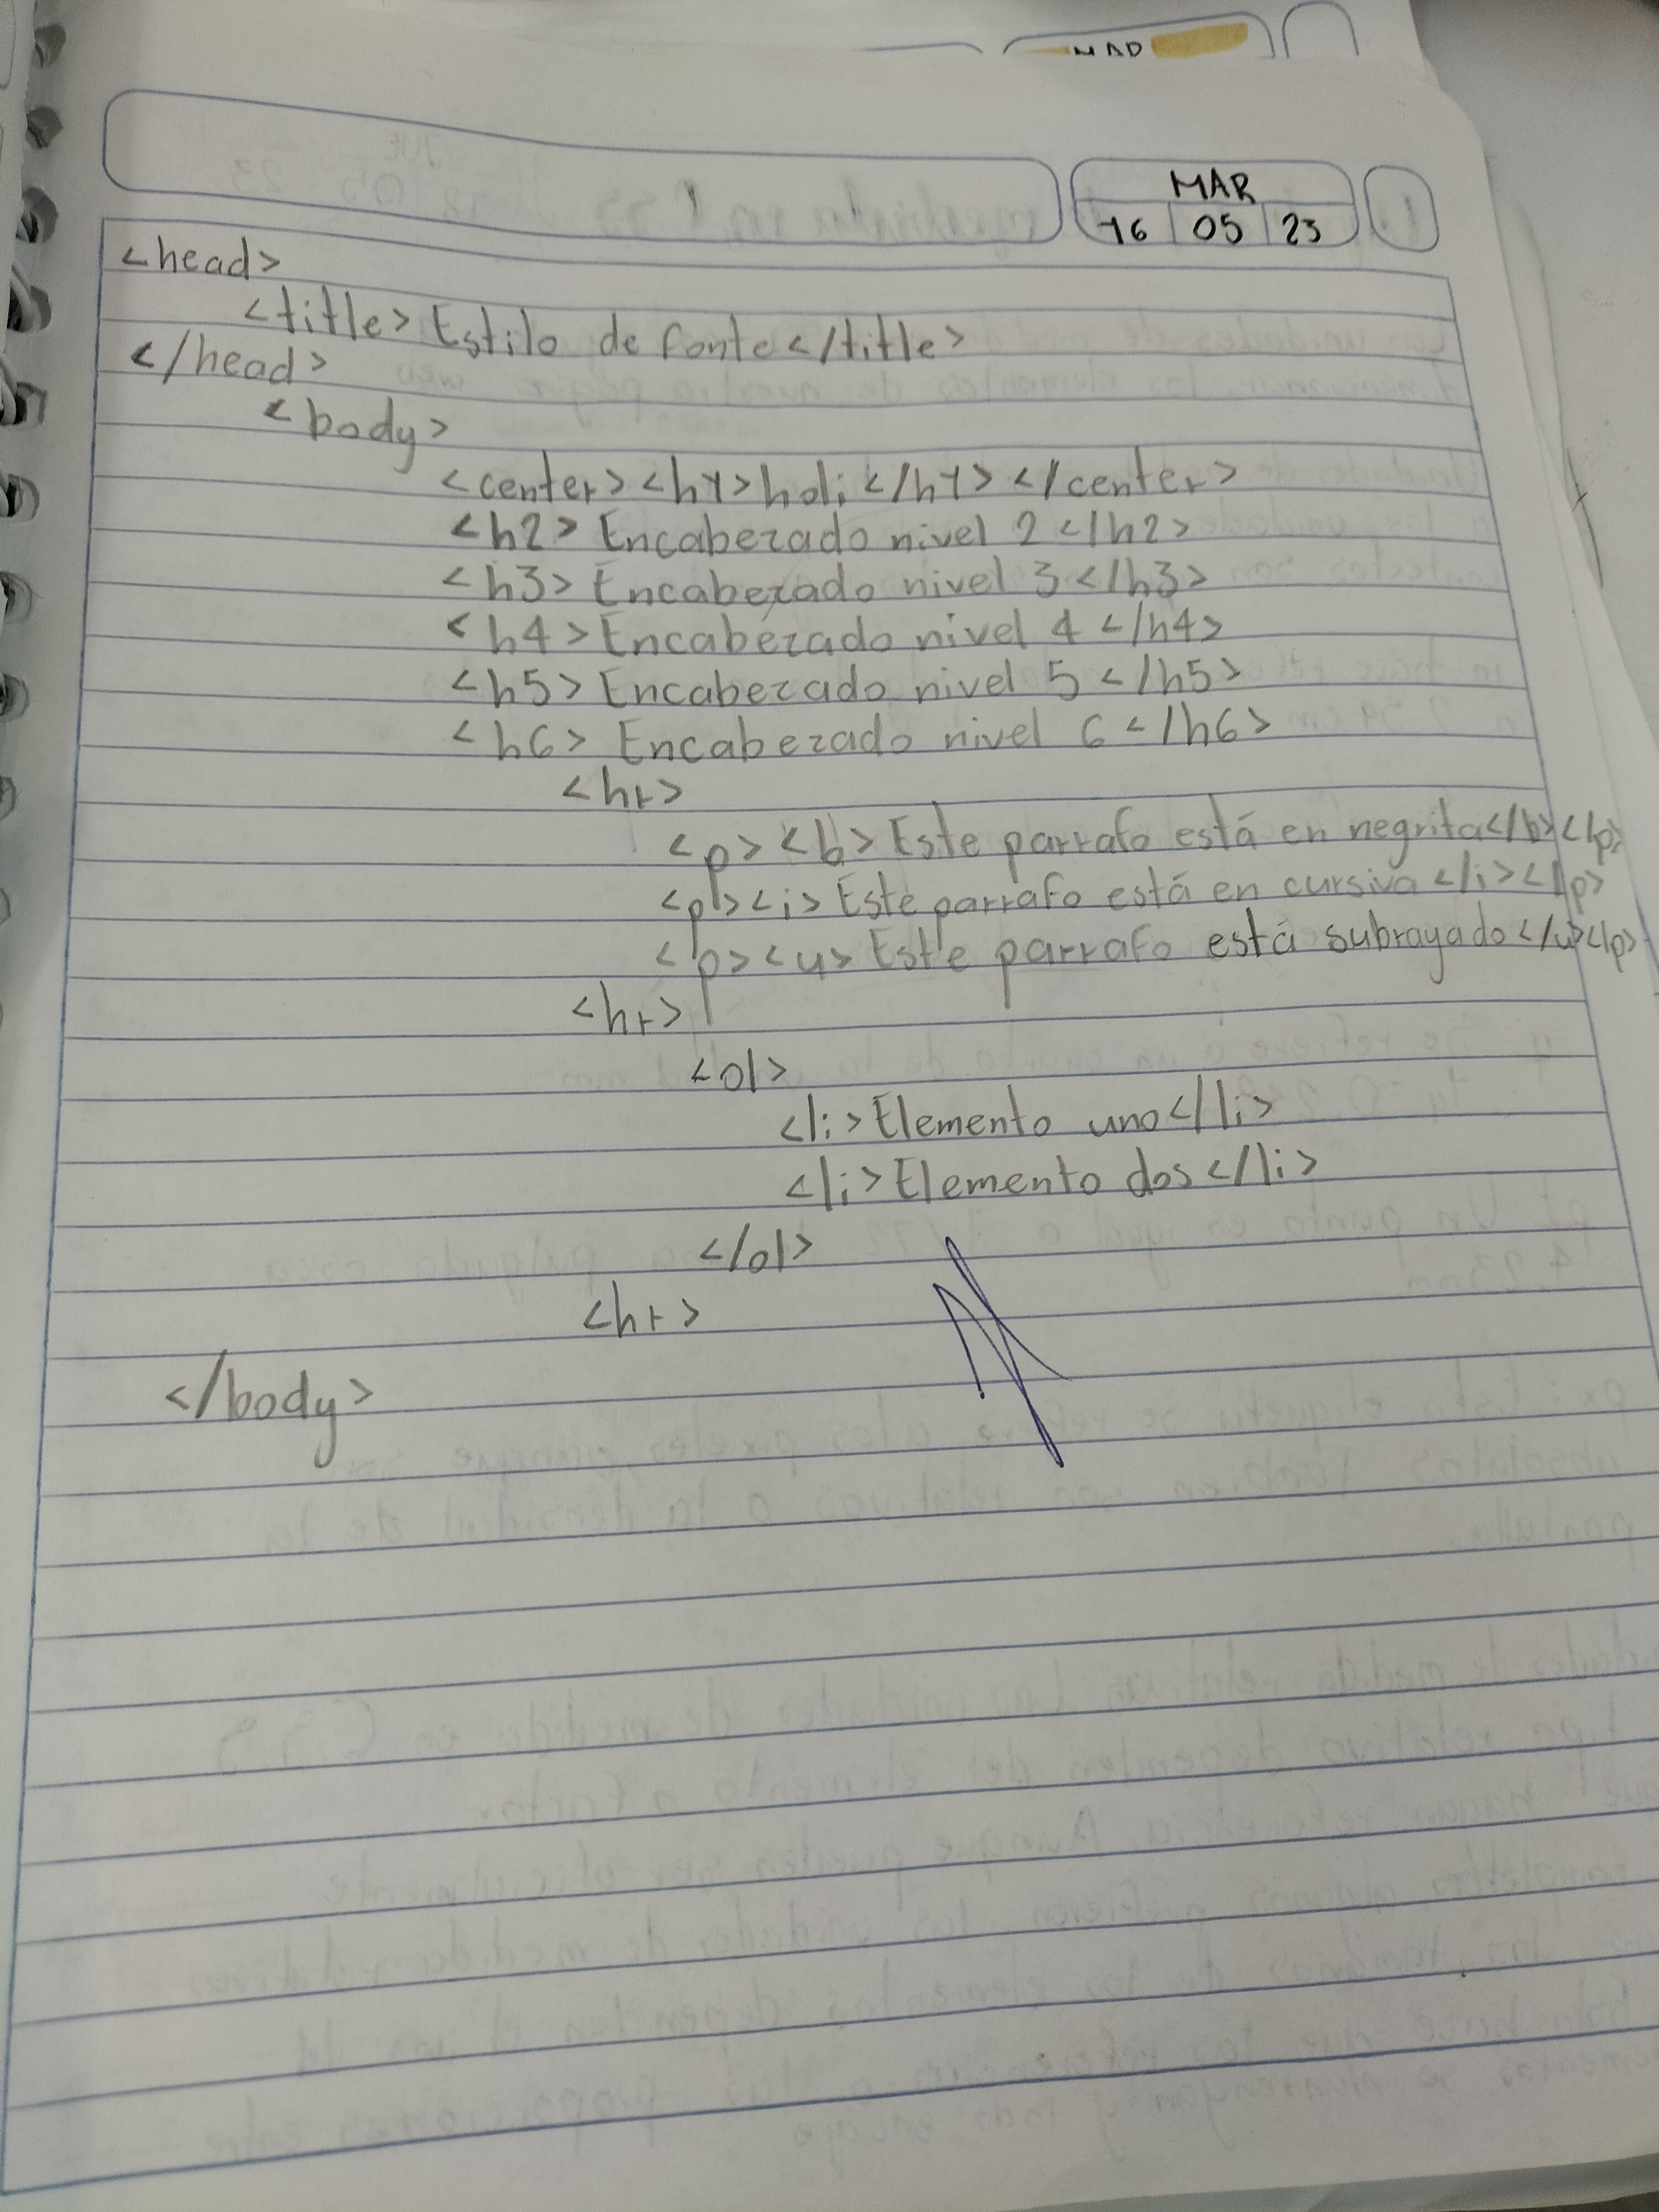 MAR
MAR
16 05 23
<head>
<title> Estilo de fonte </title>
</head>
<body>
<center> <h1> holi </h1> </center>
<h2> Encabezado nivel 2 </h2>
<h3> Encabezado nivel 3 </h3>
<h4> Encabezado nivel 4 </h4>
<h5> Encabezado nivel 5 </h5>
<h6> Encabezado nivel 6 </h6>
<hr>
<p> <b> Este parrafo está en negrita </b> </p>
<p> <i> Este parrafo está en cursiva </i> </p>
<p> <u> Este parrafo está subrayado </u> </p>
<hr>
<ol>
<li> Elemento uno </li>
<li> Elemento dos </li>
</ol>
<hr>
</body>